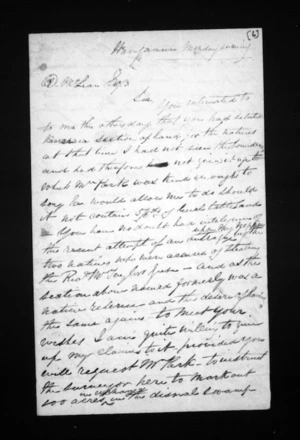 (4)
Wanganui Monday evening
D. McLean Esqre
Sir
You intimated to
me the other day that you had
a section of land, to the natives
at that time I had not seen the boundary
and had therefore not given up the
what Mr Park was kind enough to
say he would allow me to do should
it not contain of available land
You have no doubt had intelligence of
the recent attempt of an outrage
two natives who were accused of
the Revd Mr - and as the
section above named formerly was a
native reserve and the desire of having
the same again to meet your
wishes I am quite willing to give
up my claim to it, provided you
will request Mr Park to instruct
the surveyor here to mark out
500 acres in the dismal swamp